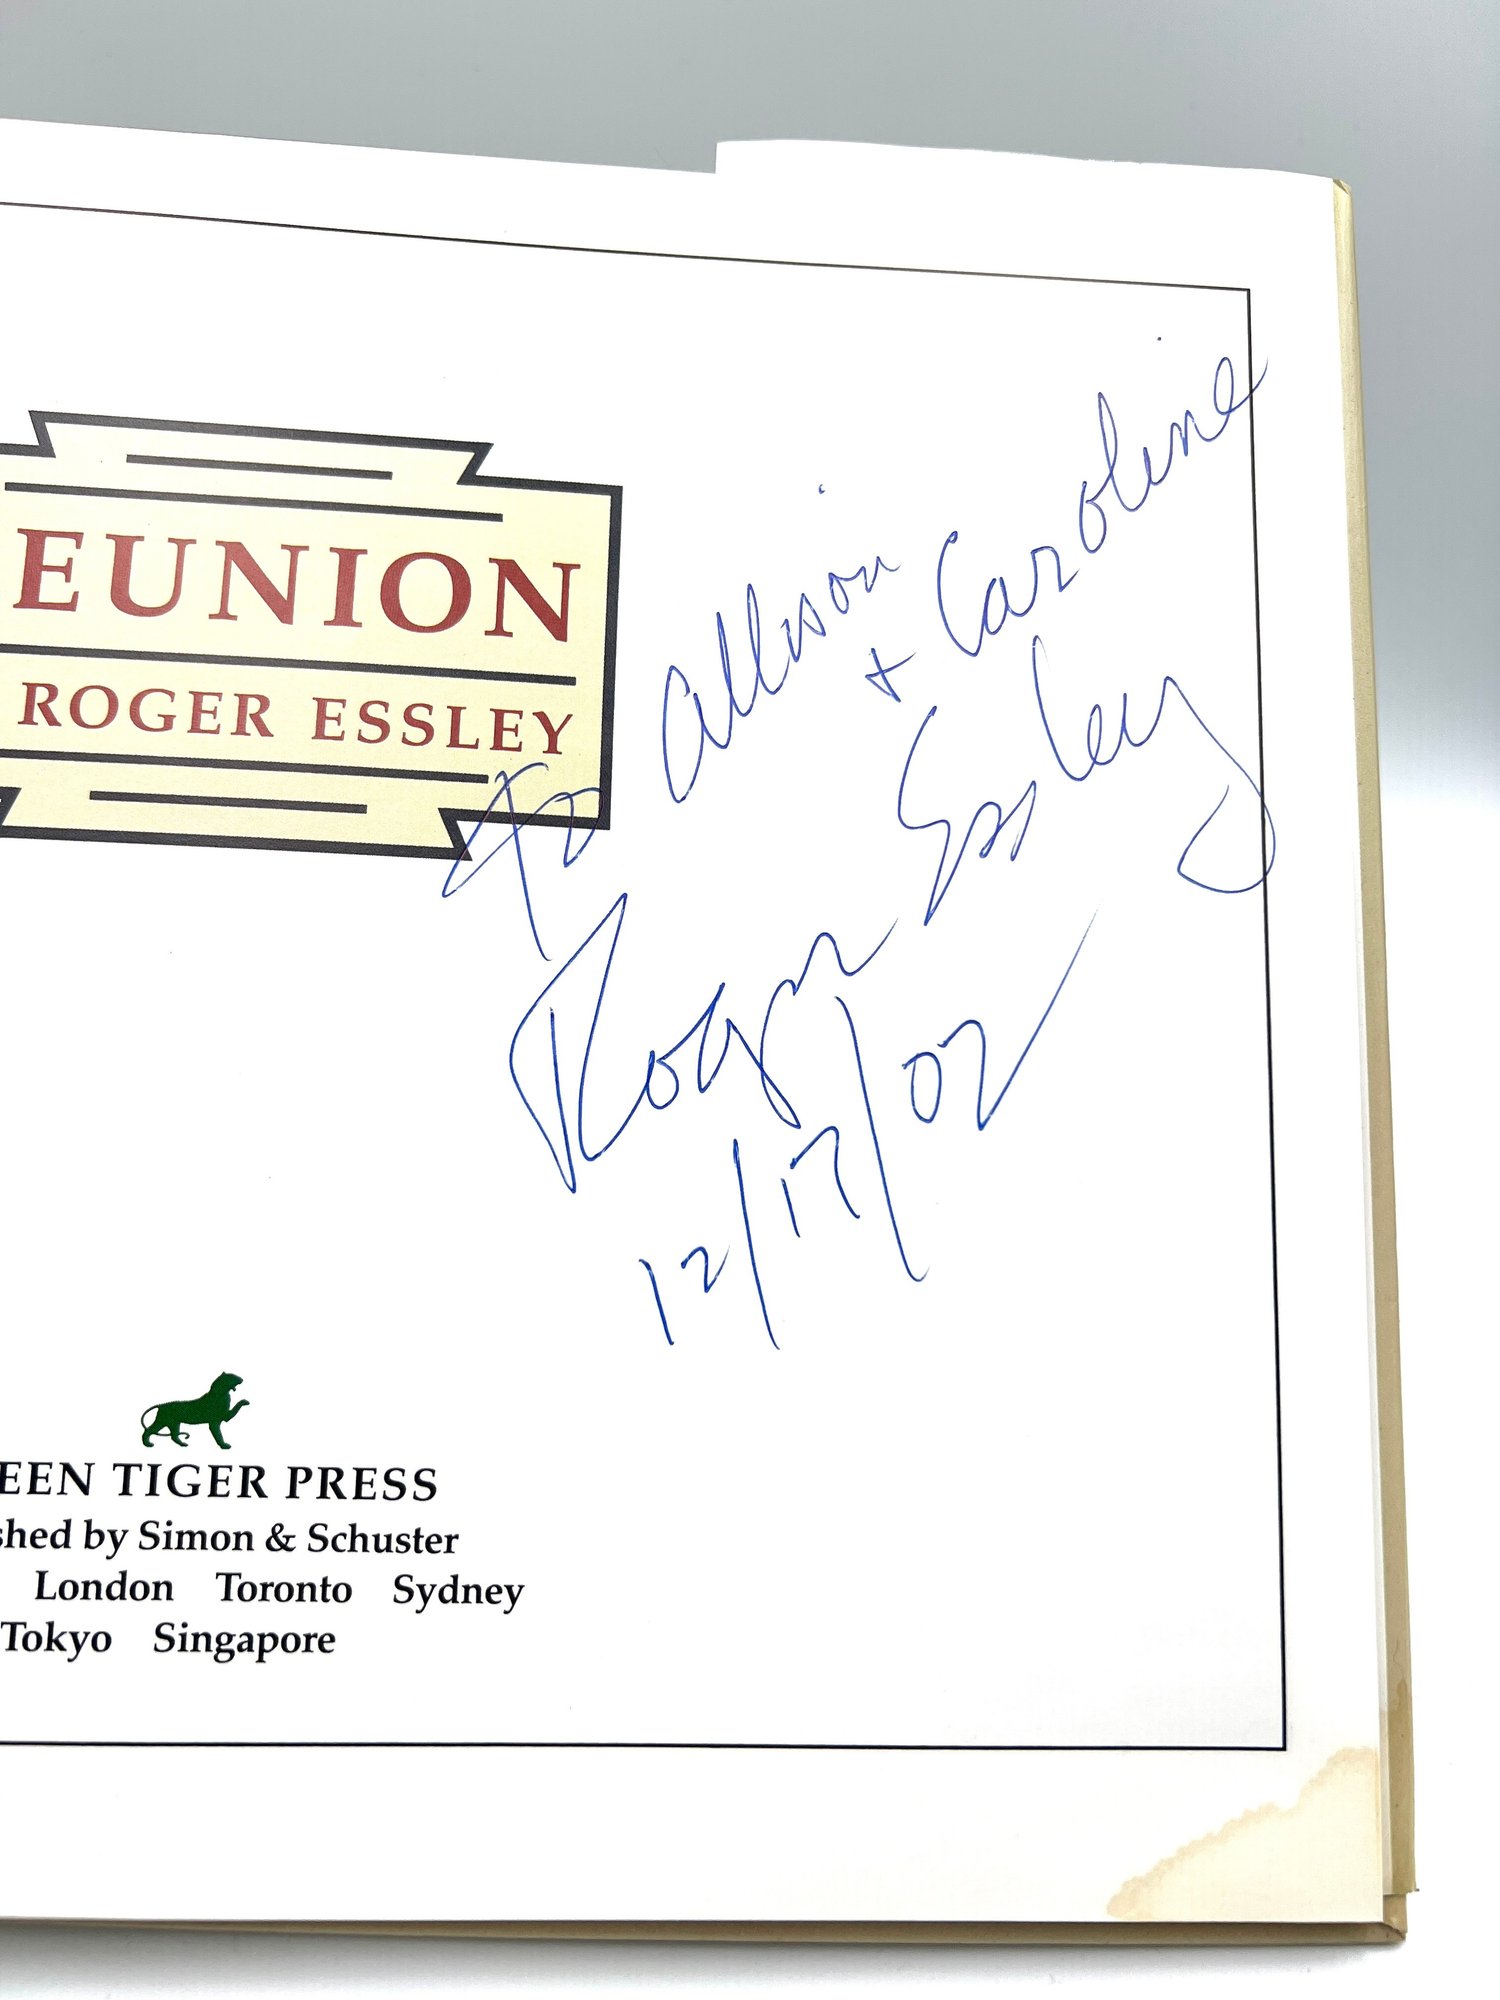 EUNION
ROGER ESSLEY
to Allison + Caroline
Roger Essley
12/17/02
EEN TIGER PRESS
shed by Simon & Schuster
London Toronto Sydney
Tokyo Singapore